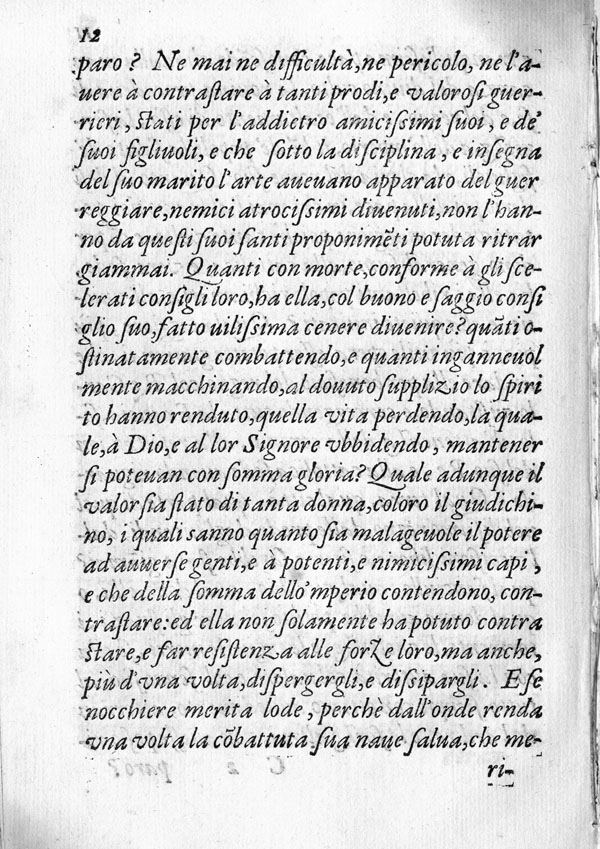 12
paro? Ne mai ne difficultà, ne pericolo, ne l'a-
uere à contrastare à tanti prodi, e valorosi guer-
rieri, stati per l'addietro amicissimi suoi, e de'
suoi figliuoli, e che sotto la disciplina, e insegna
del suo marito l'arte aueuano apparato del guer
reggiare, nemici atrocissimi diuenuti, non l'han-
no da questi suoi santi proponimẽti potuta ritrar
giammai. Quanti con morte, conforme à gli sce-
lerati consigli loro, ha ella, col buono e saggio consi
glio suo, fatto uilissima cenere diuenire? quãti o-
stinatamente combattendo, e quanti inganneuol
mente macchinando, al douuto supplizio lo spiri
to hanno renduto, quella vita perdendo, la qua-
le, à Dio, e al lor Signore vbbidendo, mantener
si poteuan con somma gloria? Quale adunque il
valor sia stato di tanta donna, coloro il giudichi-
no, i quali sanno quanto sia malageuole il potere
ad auuerse genti, e à potenti, e nimicissimi capi,
e che della somma dello'mperio contendono, con-
trastare: ed ella non solamente ha potuto contra
stare, e far resistenza alle forze loro, ma anche,
più d'vna volta, dispergergli, e dissipargli. E se
nocchiere merita lode, perchè dall'onde renda
vna volta la cõbattuta sua naue salua, che me-
ri-